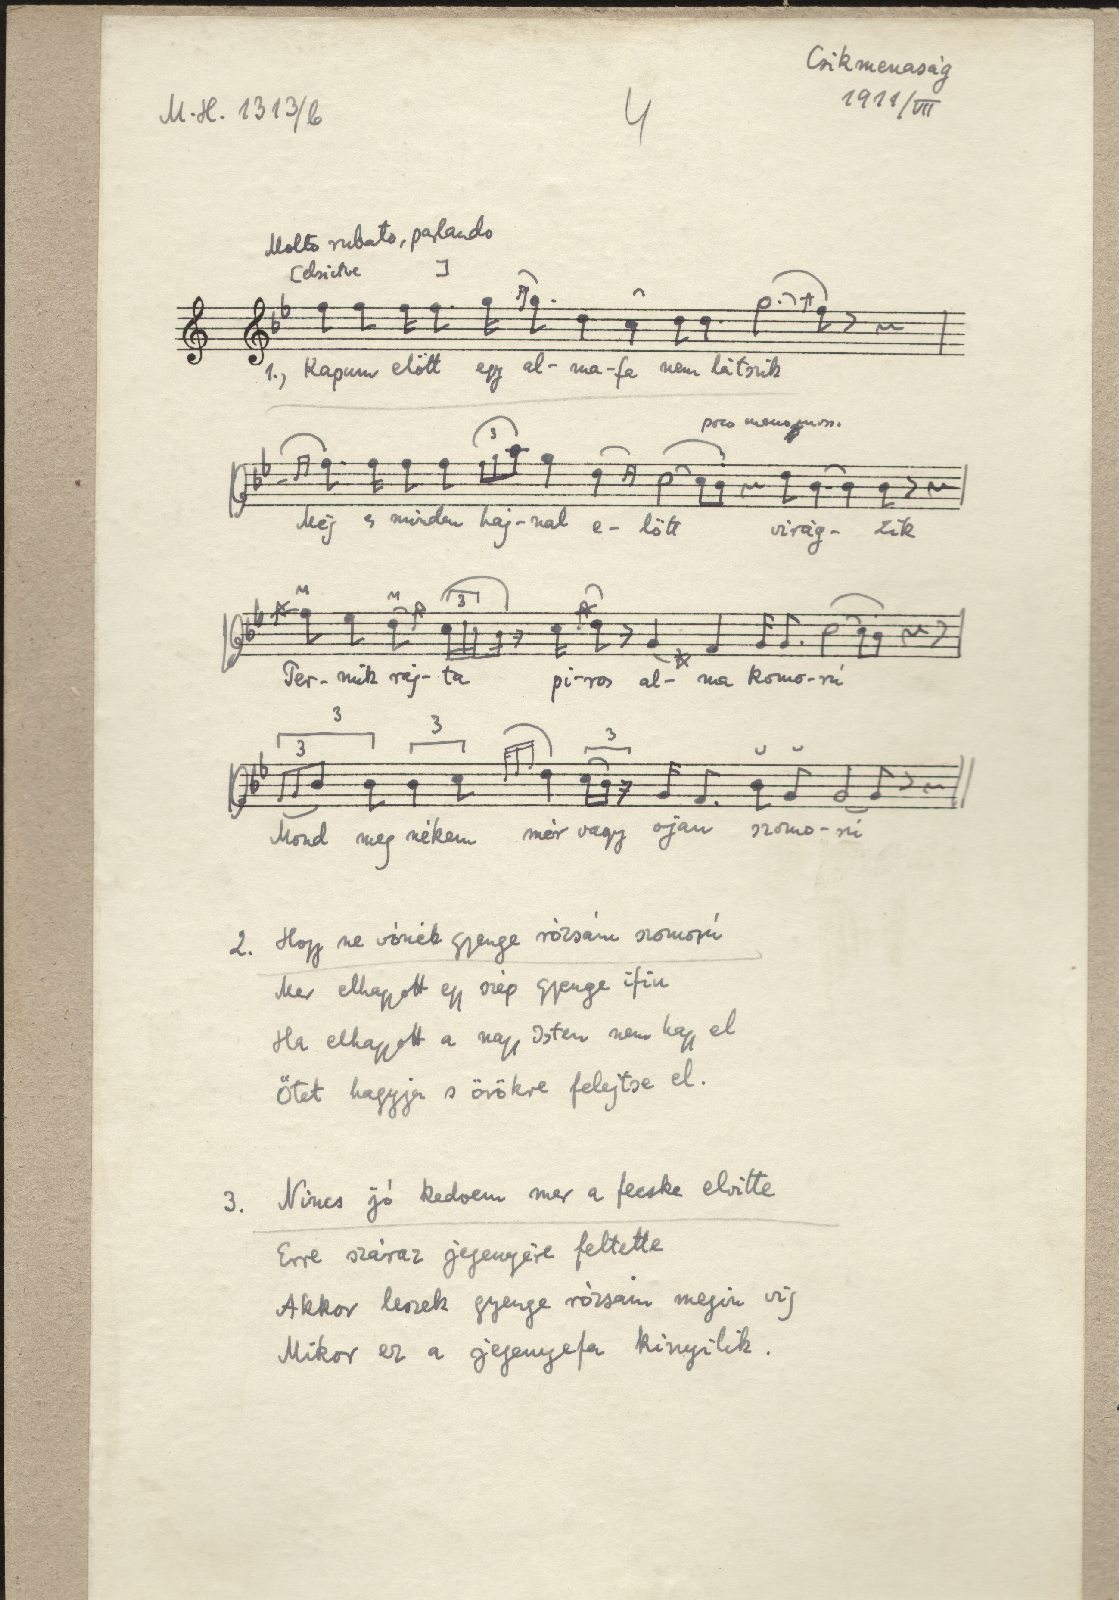 Csikmenaság
M.H. 1313/b
4
1911/VII
Molto rubato, parlando
1., Kapum előtt egy al-ma-fa nem látszik
3
poco meno mosso.
Még s minden haj-nal e-lőtt virág-zik
3
Ter-mik raj-ta pi-ros al-ma komo-rú
3
3 3 3
Mond meg nékem mér vagy ojan szomo-rú
2. Hogy ne vónék gyenge rózsám szomorú
Mer elhagyott egy szép gyenge ifiu
Ha elhagyott a nagy Isten nem hagy el
Őtet hagyja s örökre felejtse el.
3. Nincs jó kedvem mer a fecske elvitte
Erre száraz jegenyére feltette
Akkor leszek gyenge rózsám megin vig
Mikor ez a jegenyefa kinyilik.